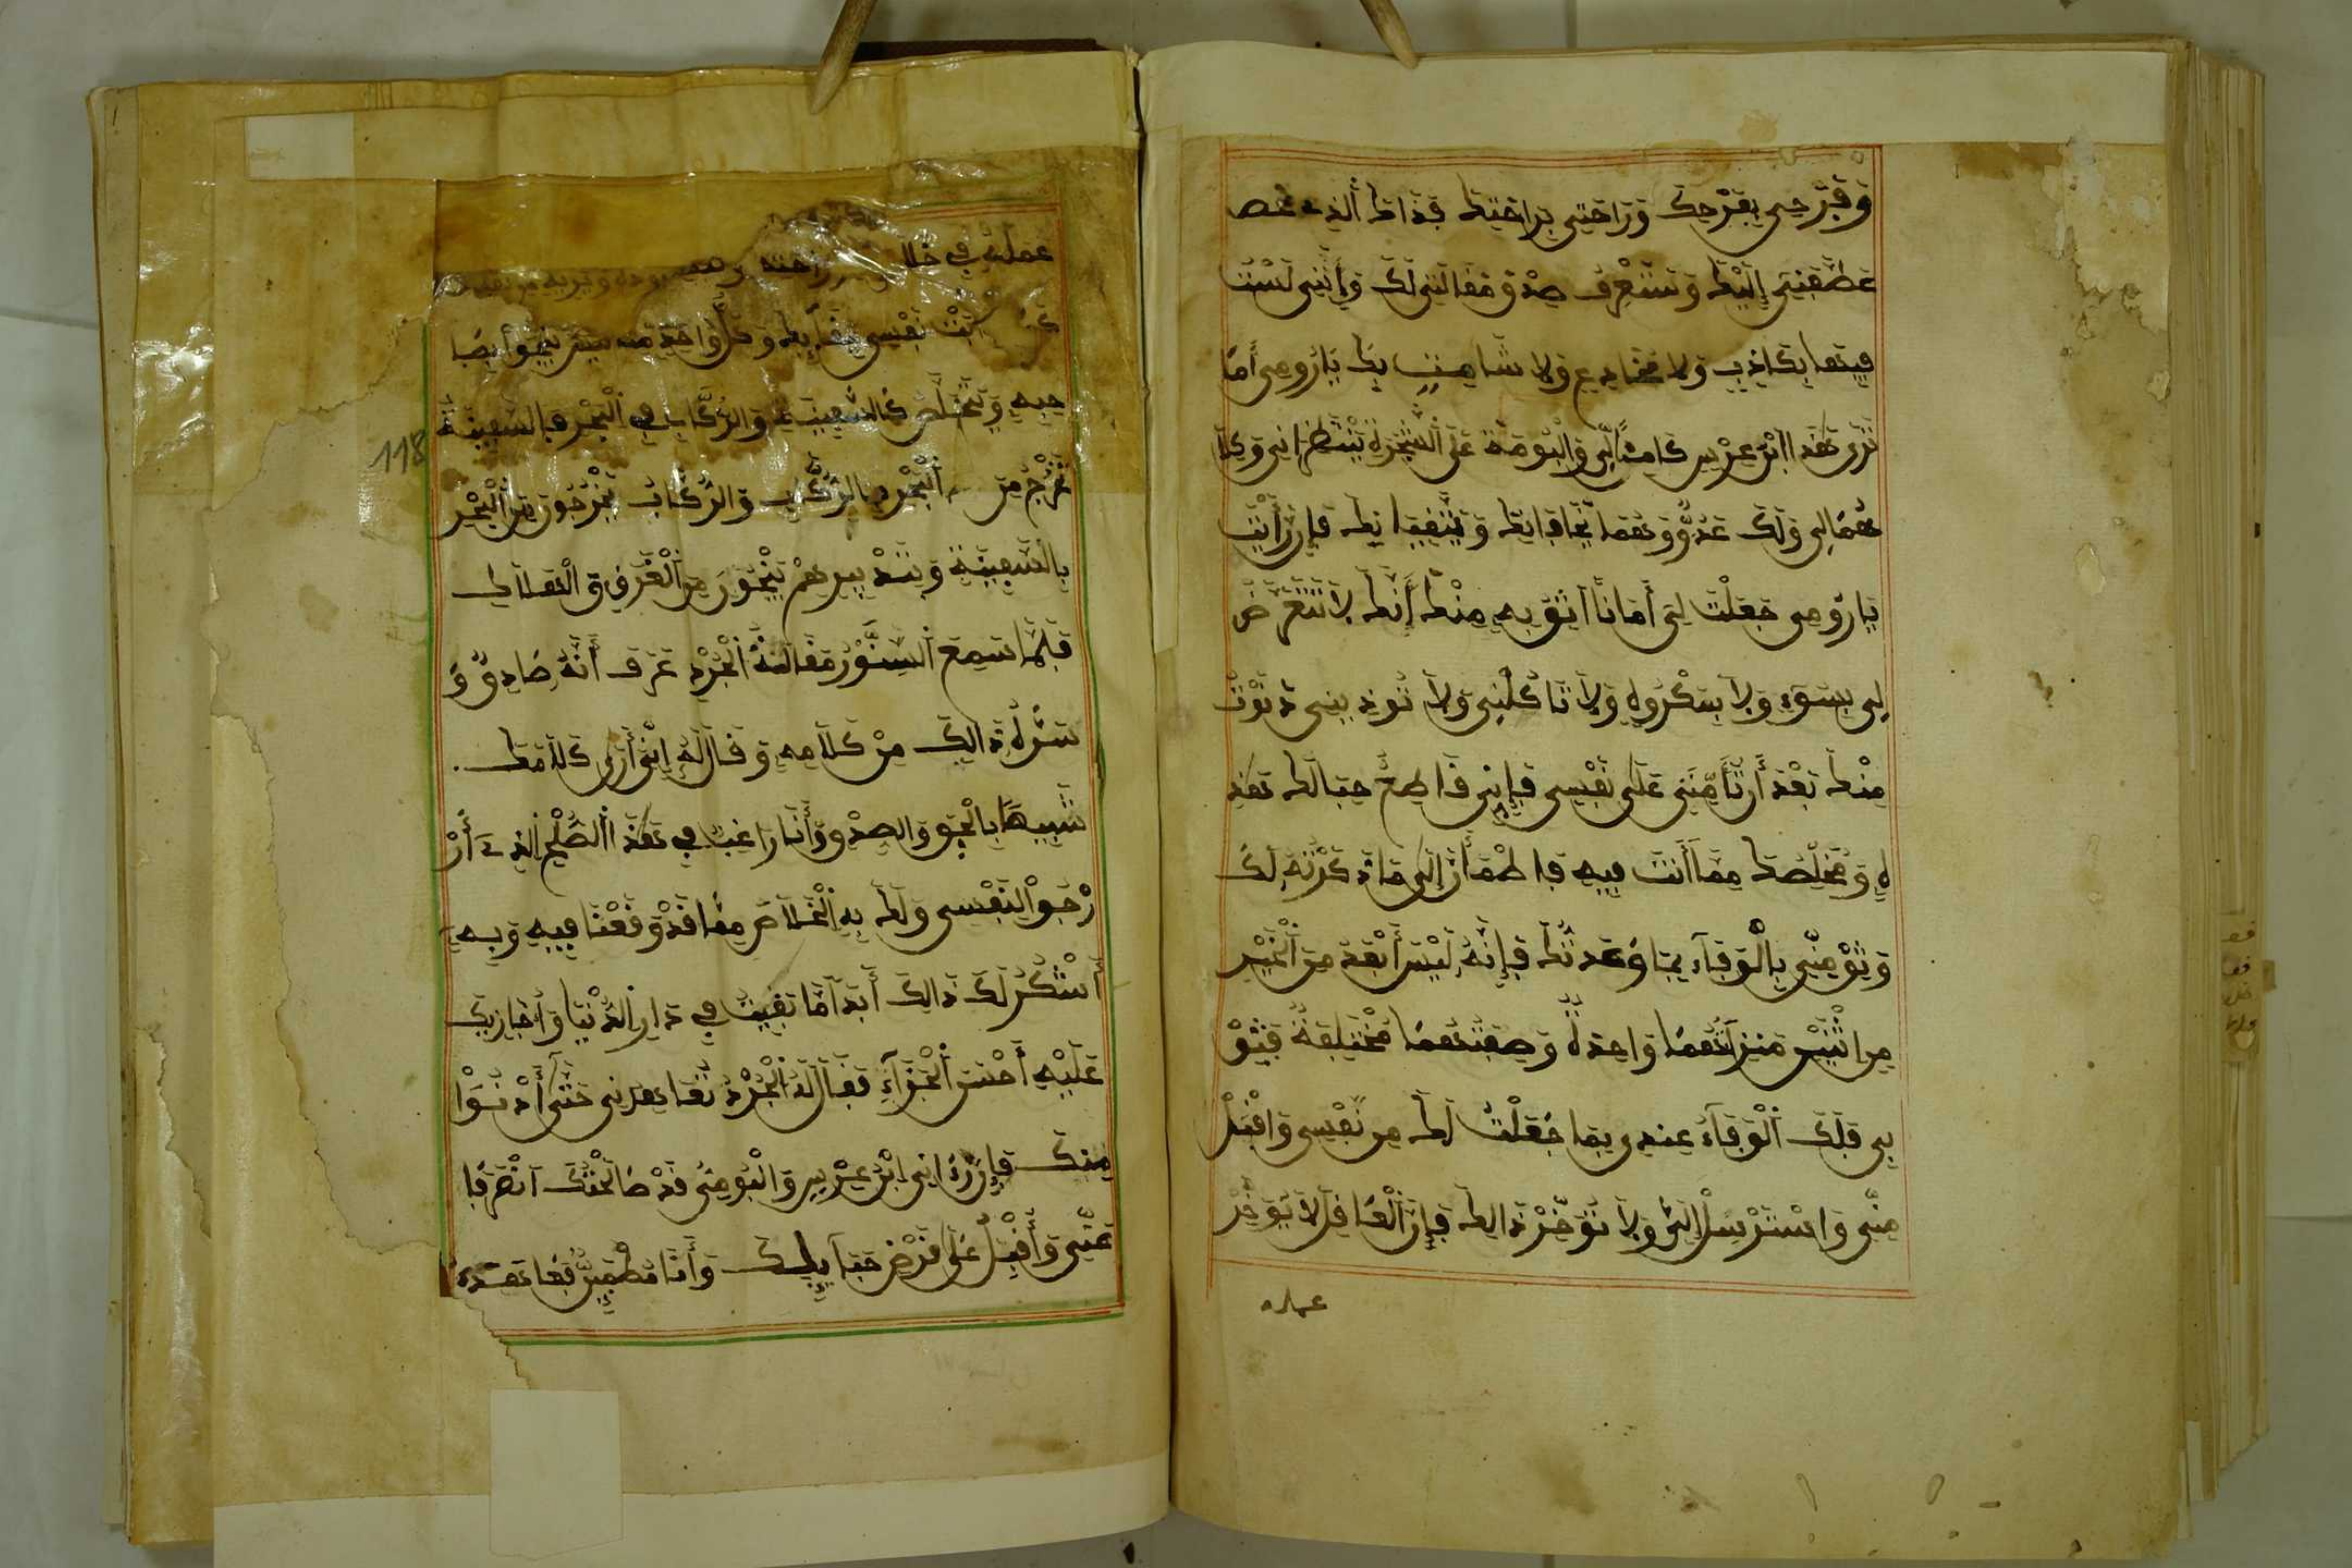 وَفَرَحِي بِفَرَحِكَ وَرَاحَتِي بِرَاحَتِكَ فَذَاكَ الَّذِي
عَطَّفَنِي إِلَيْكَ وَسَتَعْرِفُ صِدْقَ مَقَالَتِي لَكَ وَإِنَّنِي لَسْتُ
فِيهَا بِكَاذِبٍ وَلَا مُخَادِعٍ وَلَا شَامِتٍ بِكَ يَا رُومِي أَمَا
تَرَى هَذَا ابْنَ عِرْسٍ كَامِنًا لِي وَالْبُومَةَ عَلَى الشَّجَرَةِ يَنْتَظِرَانِي وَكِلَا
هُمَا لِي وَلَكَ عَدُوٌّ وَهُمَا يَخَافَانِكَ وَيَتَّقِيَانِكَ فَإِنْ رَأَيْتَ
يَا رُومِي جَعَلْتَ لِي أَمَانًا أَثِقُ بِهِ مِنْكَ أَنَّكَ لَا تَتَعَرَّضُ
لِي بِسُوءٍ وَلَا بِمَكْرُوهٍ وَلَا تَأْكُلُنِي وَلَا تُوذِينِي دَنَوْتُ
مِنْكَ بَعْدَ أَنْ تَأَمَّنَنِي عَلَى نَفْسِي فَإِنِّي قَاطِعٌ حِبَالَكَ هَذِ
هِ وَمُخَلِّصُكَ مِمَّا أَنْتَ فِيهِ فَاطْمَأِنَّ إِلَى مَا ذَكَرْتُهُ لَكَ
وَثِقْ مِنِّي بِالْوَفَاءِ بِمَا وَعَدْتُكَ فَإِنَّهُ لَيْسَ أَبْعَدَ مِنَ الْخَيْرِ
مِنِ اثْنَيْنِ مَنْزِلَتُهُمَا وَاحِدَةٌ وَصِفَتُهُمَا مُخْتَلِفَةٌ فَثِقْ
بِي فَلَكَ الْوَفَاءُ عِنْدِي بِمَا جَعَلْتُ لَكَ مِنْ نَفْسِي وَاقْبَلْ
مِنِّي وَاسْتَرْسِلْ إِلَيَّ وَلَا تُؤَخِّرْ ذَالِكَ فَإِنَّ الْعَاقِلَ لَا يُوَخِّرُ
عمله
عَمَلَهُ فِي
نَفْسِي بَقَاءَكَ وَكُلُّ وَاحِدٍ مِنَّا يَنْجُوا بِصَا
حِبِهِ وَيَتَخَلَّصُ كَالسَّفِينَةِ وَالرُّكَّابِ فِي الْبَحْرِ فَالسَّفِينَةُ
تَخْرُجُ مِنَ الْبَحْرِ بِالرُّكَّابِ وَالرُّكَّابُ يَخْرُجُونَ مِنَ الْبَحْرِ
بِالسَّفِينَةِ وَبِتَدْبِيرِهِمْ يَنْجَوْنَ مِنَ الْغَرَقِ وَالْهَلَاكِ
فَلَمَّا سَمِعَ السِّنَّوْرُ مَقَالَةَ الْجُرْذِ عَرَفَ أَنَّهُ صَادِقٌ وَ
سَرَّهُ ذَالِكَ مِنْ كَلَامِهِ وَقَالَ لَهُ إِنِّي أَرَى كَلَامَكَ
شَبِيهًا بِالْحَقِّ وَالصِّدْقِ وَأَنَا رَاغِبٌ فِي هَذَا الصُّلْحِ الَّذِي أَرْ
رْجُو لِنَفْسِي وَلَكَ بِهِ الْخَلَاصَ مِمَّا قَدْ وَقَعْنَا فِيهِ وَبِهِ
أَشْكُرُ لَكَ ذَالِكَ أَبَدًا مَا بَقِيتُ فِي دَارِ الدُّنْيَا وَأُجَازِيكَ
عَلَيْهِ أَحْسَنَ الْجَزَاءِ فَقَالَ لَهُ الْجُرْذُ تُعَاهِدُنِي حَتَّى أَدْنُوا
مِنْكَ فَإِنْ رَءَانِي ابْنُ عِرْسٍ وَالْبُومَةُ قَدْ صَالَحْتُكَ انْصَرَفَا
عَنِّي وَأَقْبَلْ عَلَى قَرْضِ حَبَائِلِكَ وَأَنَا مُطْمَئِنٌّ فَعَاهَدَهُ
118